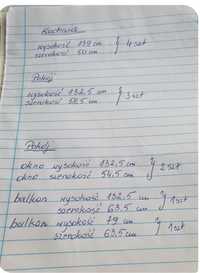 Kuchnia
wysokość 139 cm
szerokość 50 cm } 4 szt
Pokój
wysokość 132,5 cm
szerokość 58,5 cm } 3 szt
Pokój
okno wysokość 132,5 cm
okno szerokość 54,5 cm } 2 szt
balkon wysokość 132,5 cm
szerokość 63,5 cm } 1 szt
balkon wysokość 79 cm
szerokość 63,5 cm } 1 szt